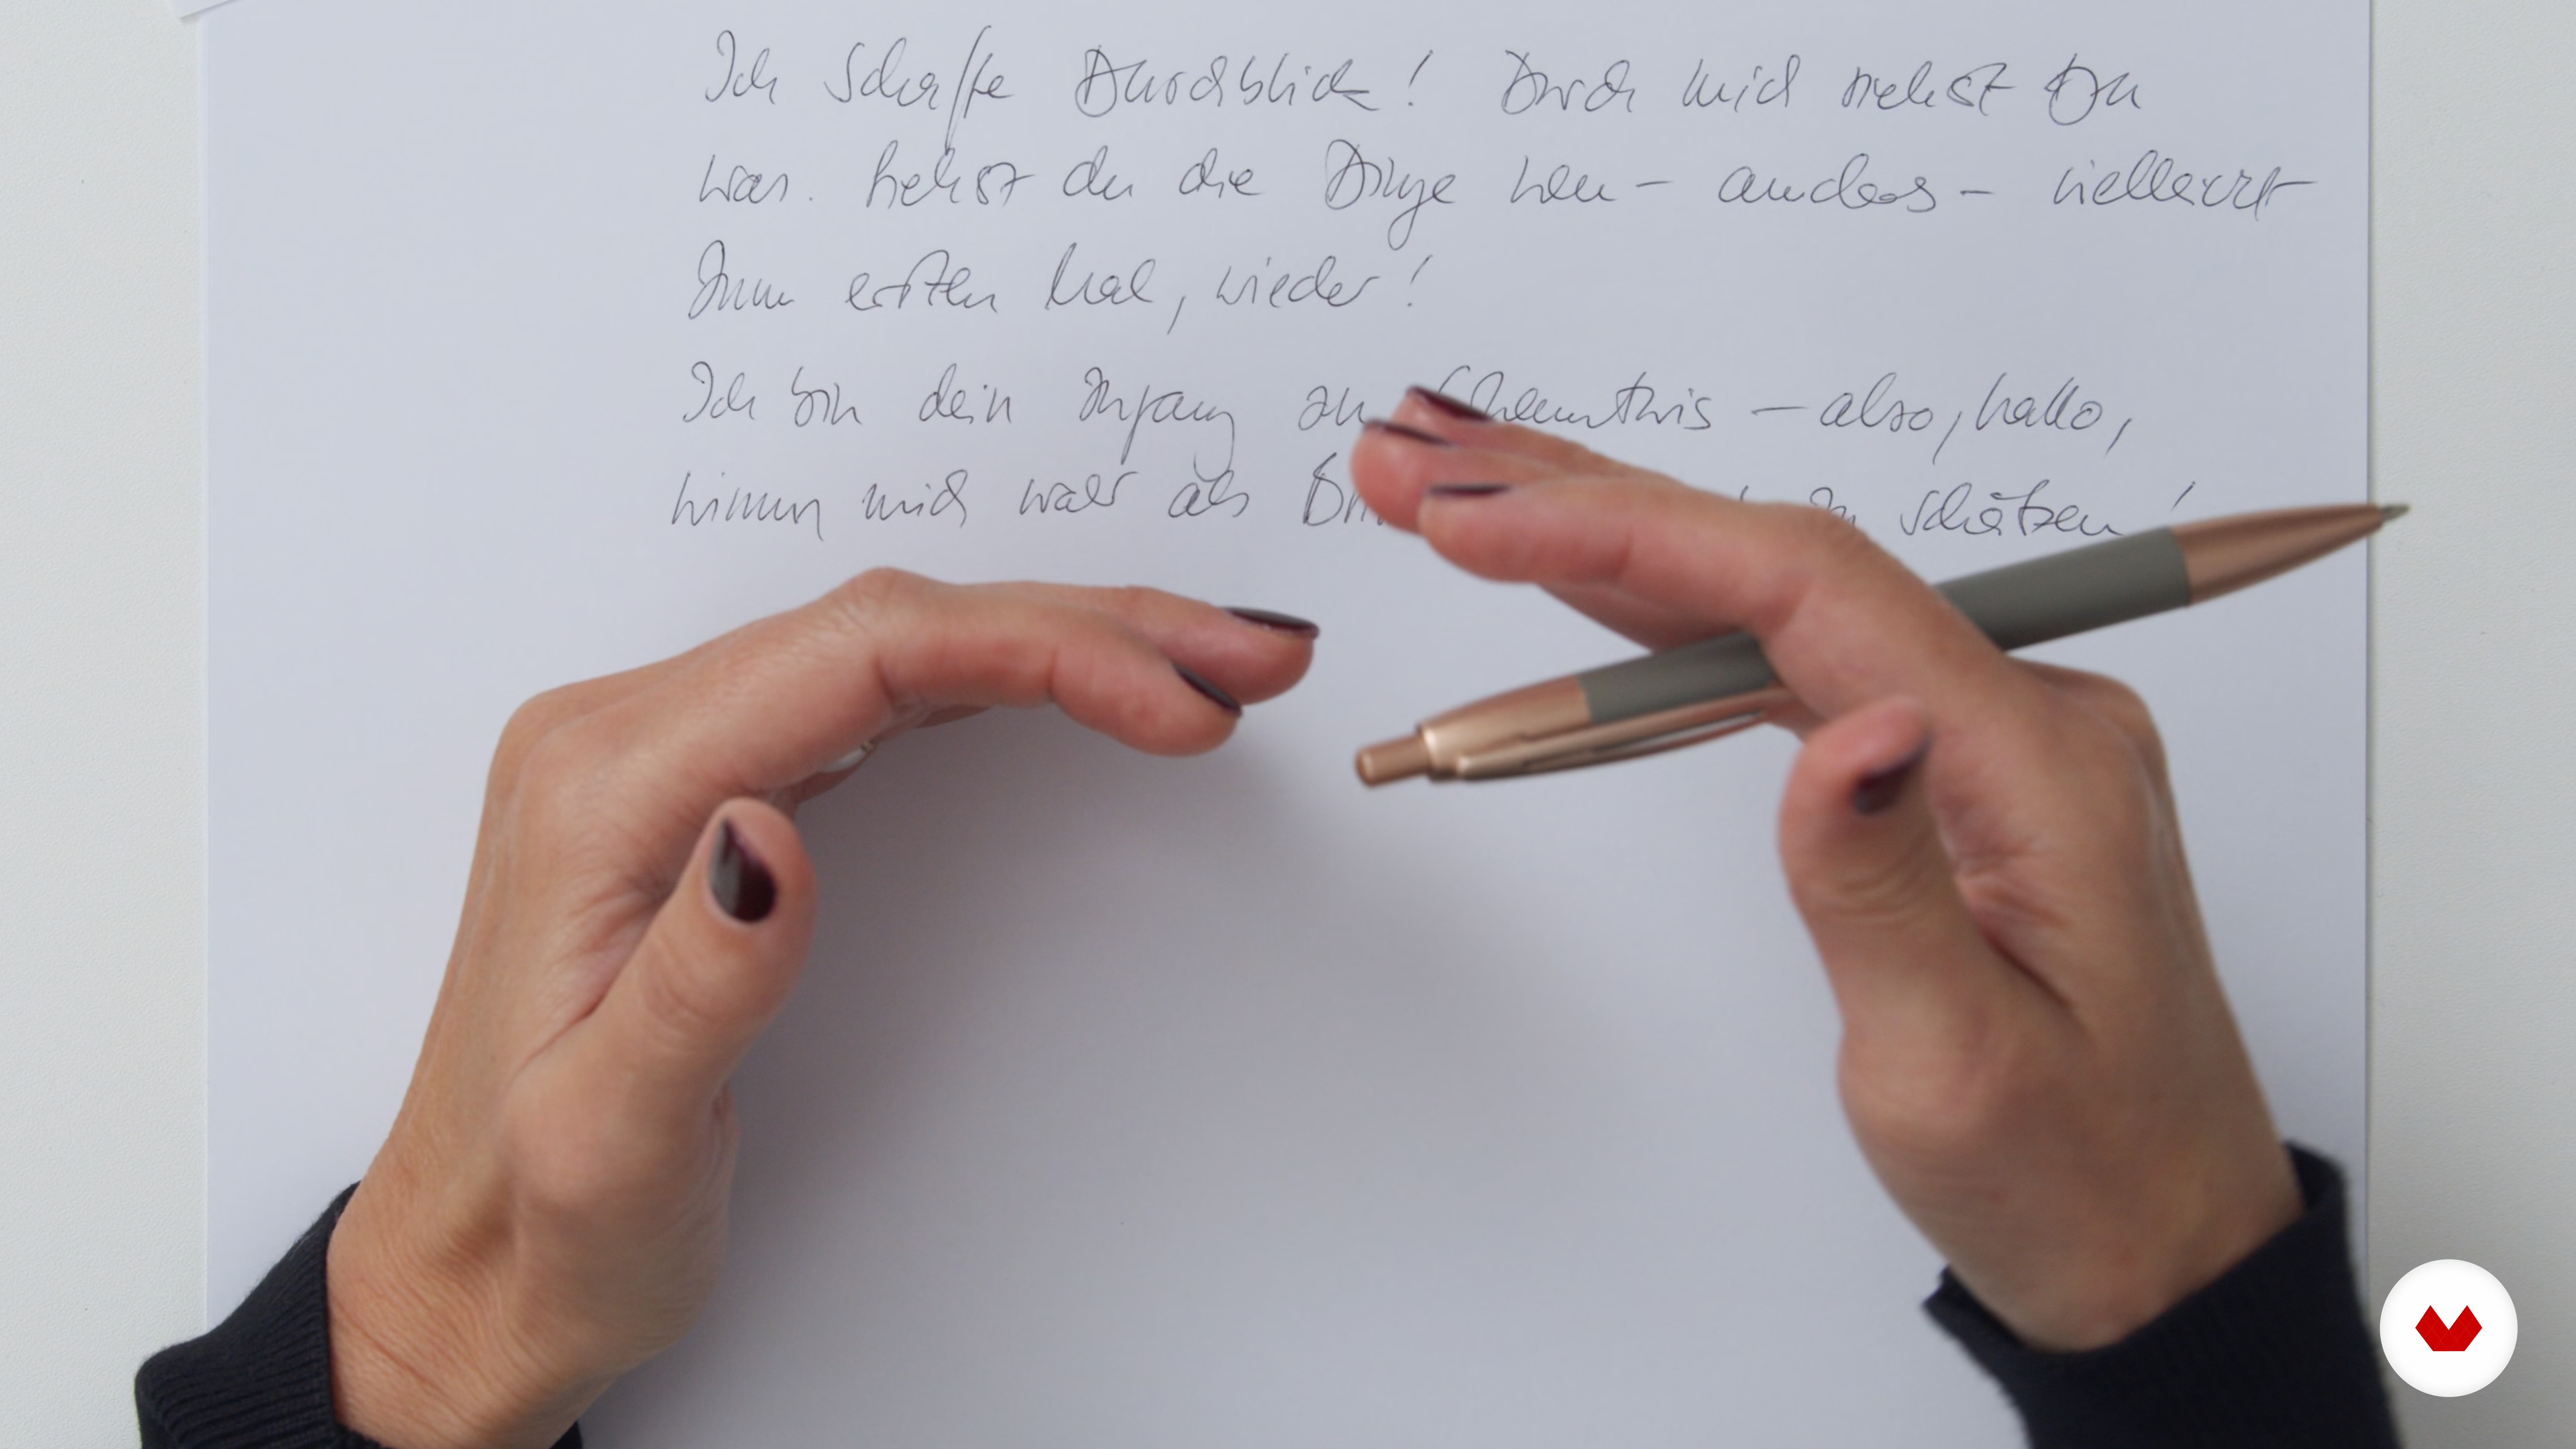 Ich schaffe Durchblick! Durch mich siehst Du
was. Siehst du die Dinge neu – anders – vielleicht
zum ersten Mal, wieder!
Ich bin dein Zugang zu Erkenntnis – also, hallo,
nimm mich wahr als zu schätzen!